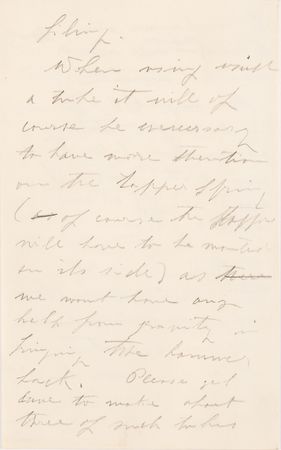 filing.
When using with
a tube it will of
course be necessary
to have more tention
on the tapper spring
(of course the tapper
will have to be mounted
on its side) as
we wont have any
help from gravity in
bringing the hammer
back. Please get
Dave to make about
three of such tubes